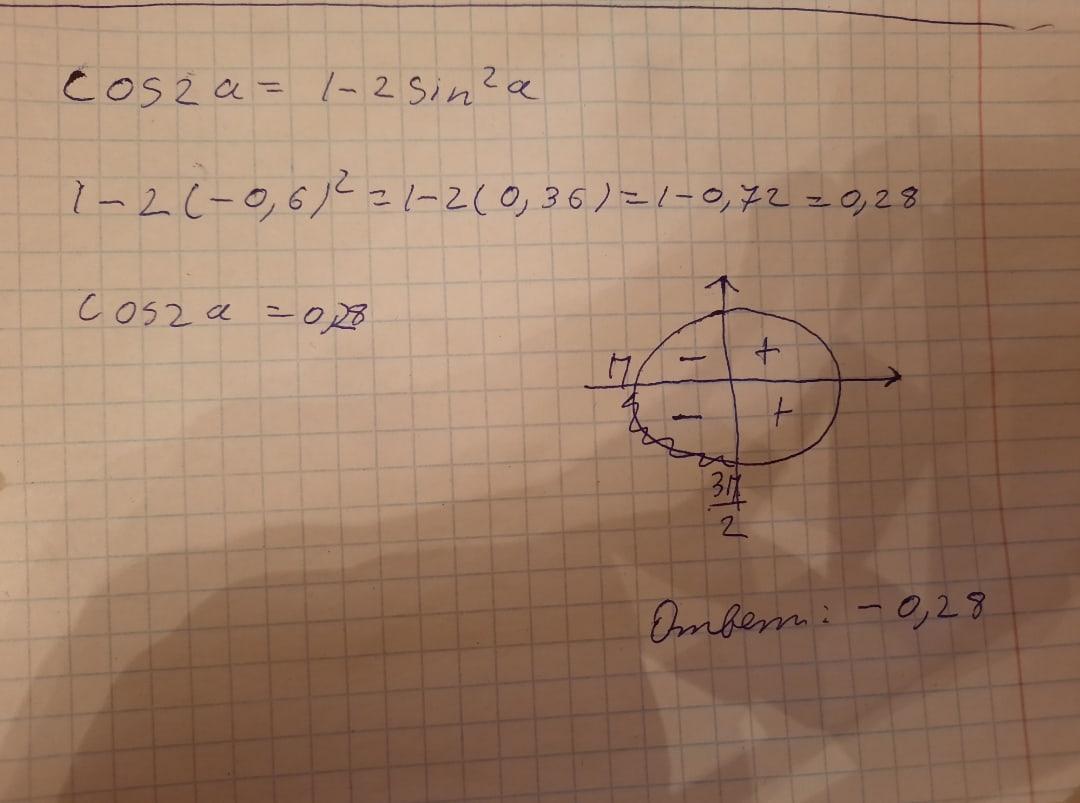 cos2a = 1-2sin²a
1-2(-0,6)² = 1-2(0,36) = 1-0,72 = 0,28
cos2a = 0,28
- +
П
- +
3П
2
Ответ: -0,28